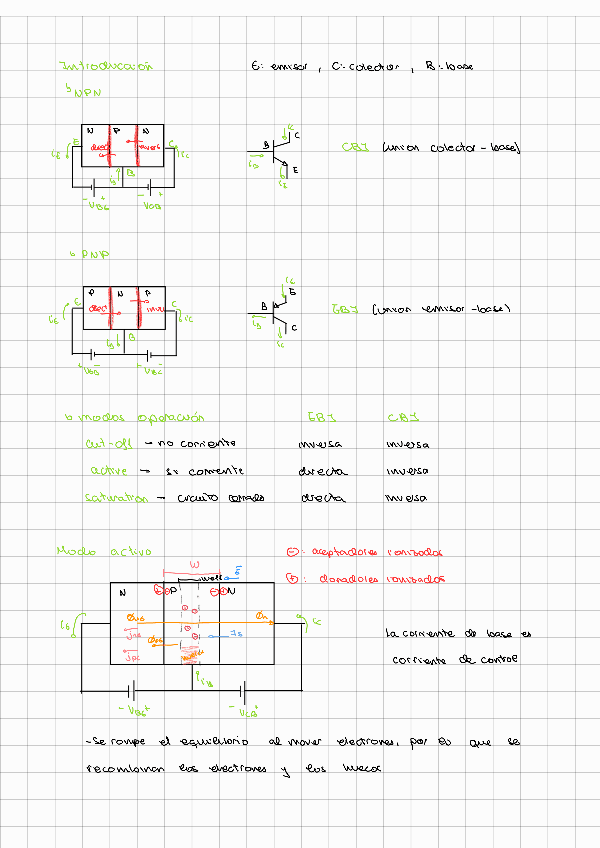 Introducción E: emisor, C: colector, B: base
↳ NPN
N P N
E C
direct invers
B
i_E i_C
i_B
- V_BE + - V_CB +
C
i_C
B
i_B
E
i_E
CBJ (union colector-base)
↳ PNP
P N P
E C
direct inver
B
i_E i_C
i_B
+ V_EB - + V_BC -
E
B
i_B
C
i_C
EBJ (union emisor-base)
↳ modos operación EBJ CBJ
cut-off - no corriente inversa inversa
active → si corriente directa inversa
saturation - circuito cerrado directa inversa
Modo activo
⊖: aceptadores ionizados
⊕: donadores ionizados
W
N P N
La corriente de base es
corriente de control
i_B
- V_BE + - V_CB +
- Se rompe el equilibrio al mover electrones, por eso que se
recombinan los electrones y los huecos